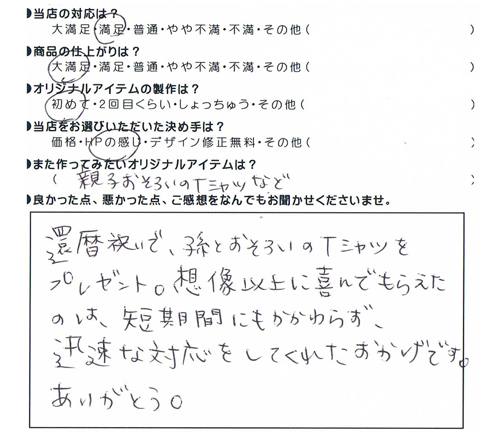 ◗当店の対応は？
大満足・満足・普通・やや不満・不満・その他（　　　）
◗商品の仕上がりは？
大満足・満足・普通・やや不満・不満・その他（　　　）
◗オリジナルアイテムの製作は？
初めて・2回目くらい・しょっちゅう・その他（　　　）
◗当店をお選びいただいた決め手は？
価格・HPの感じ・デザイン修正無料・その他（　　　）
◗また作ってみたいオリジナルアイテムは？
（ 親子おそろいのTシャツなど　　　）
◗良かった点、悪かった点、ご感想をなんでもお聞かせくださいませ。
還暦祝いで、孫とおそろいのTシャツを
プレゼント。想像以上に喜んでもらえた
のは、短期間にもかかわらず、
迅速な対応をしてくれたおかげです。
ありがとう。